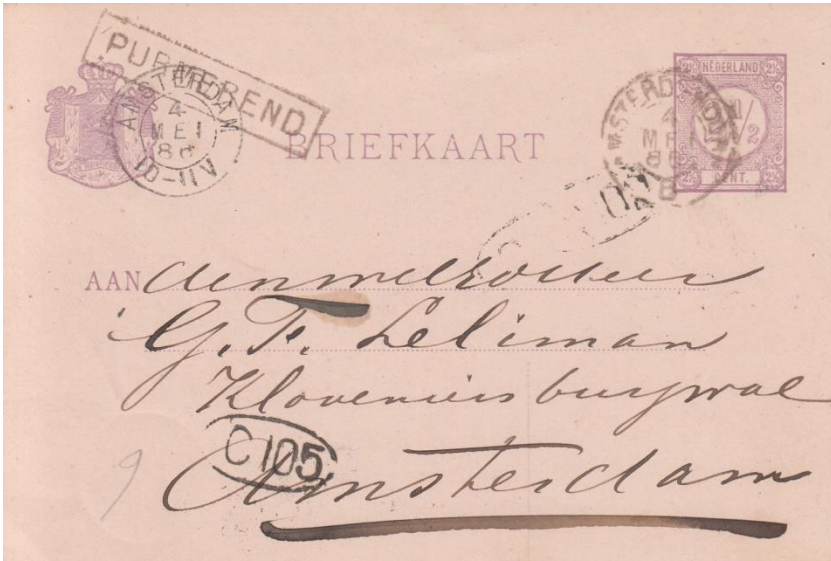 PURMEREND
AMSTERDAM
4
MEI
86
10-11V
BRIEFKAART
NEDERLAND
2½ 2½
CENT.
4
MEI
86
AAN
G. F. Leliman
Kloveniersburgwal
C105
Amsterdam